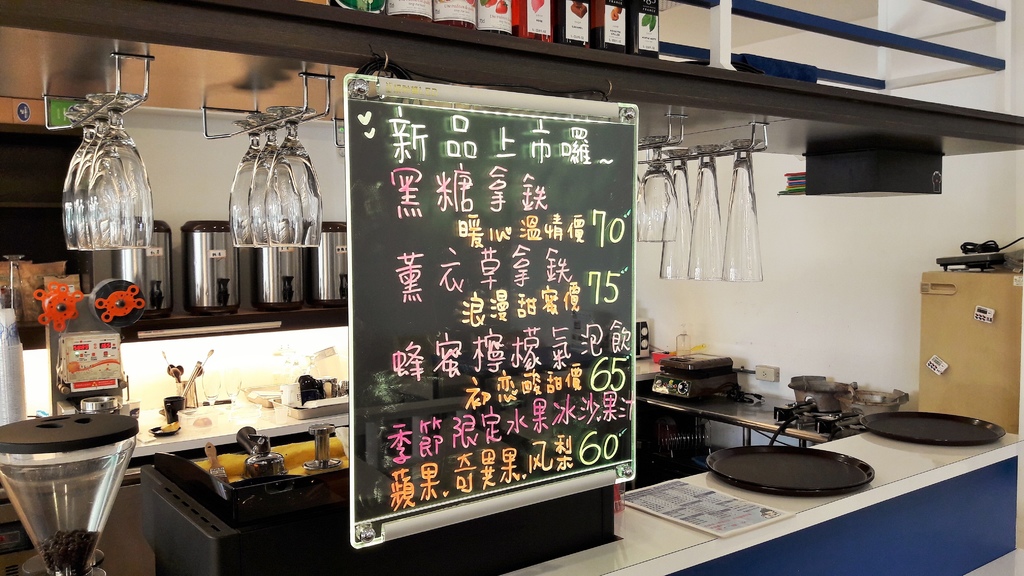 新品上市囉~
黑糖拿鉄
暖心溫情價 70
薰衣草拿鉄
浪漫甜蜜價 75
蜂蜜檸檬氣泡飲
初恋酸甜價 65
季節限定水果冰沙果汁
蘋果.奇異果.风梨 60